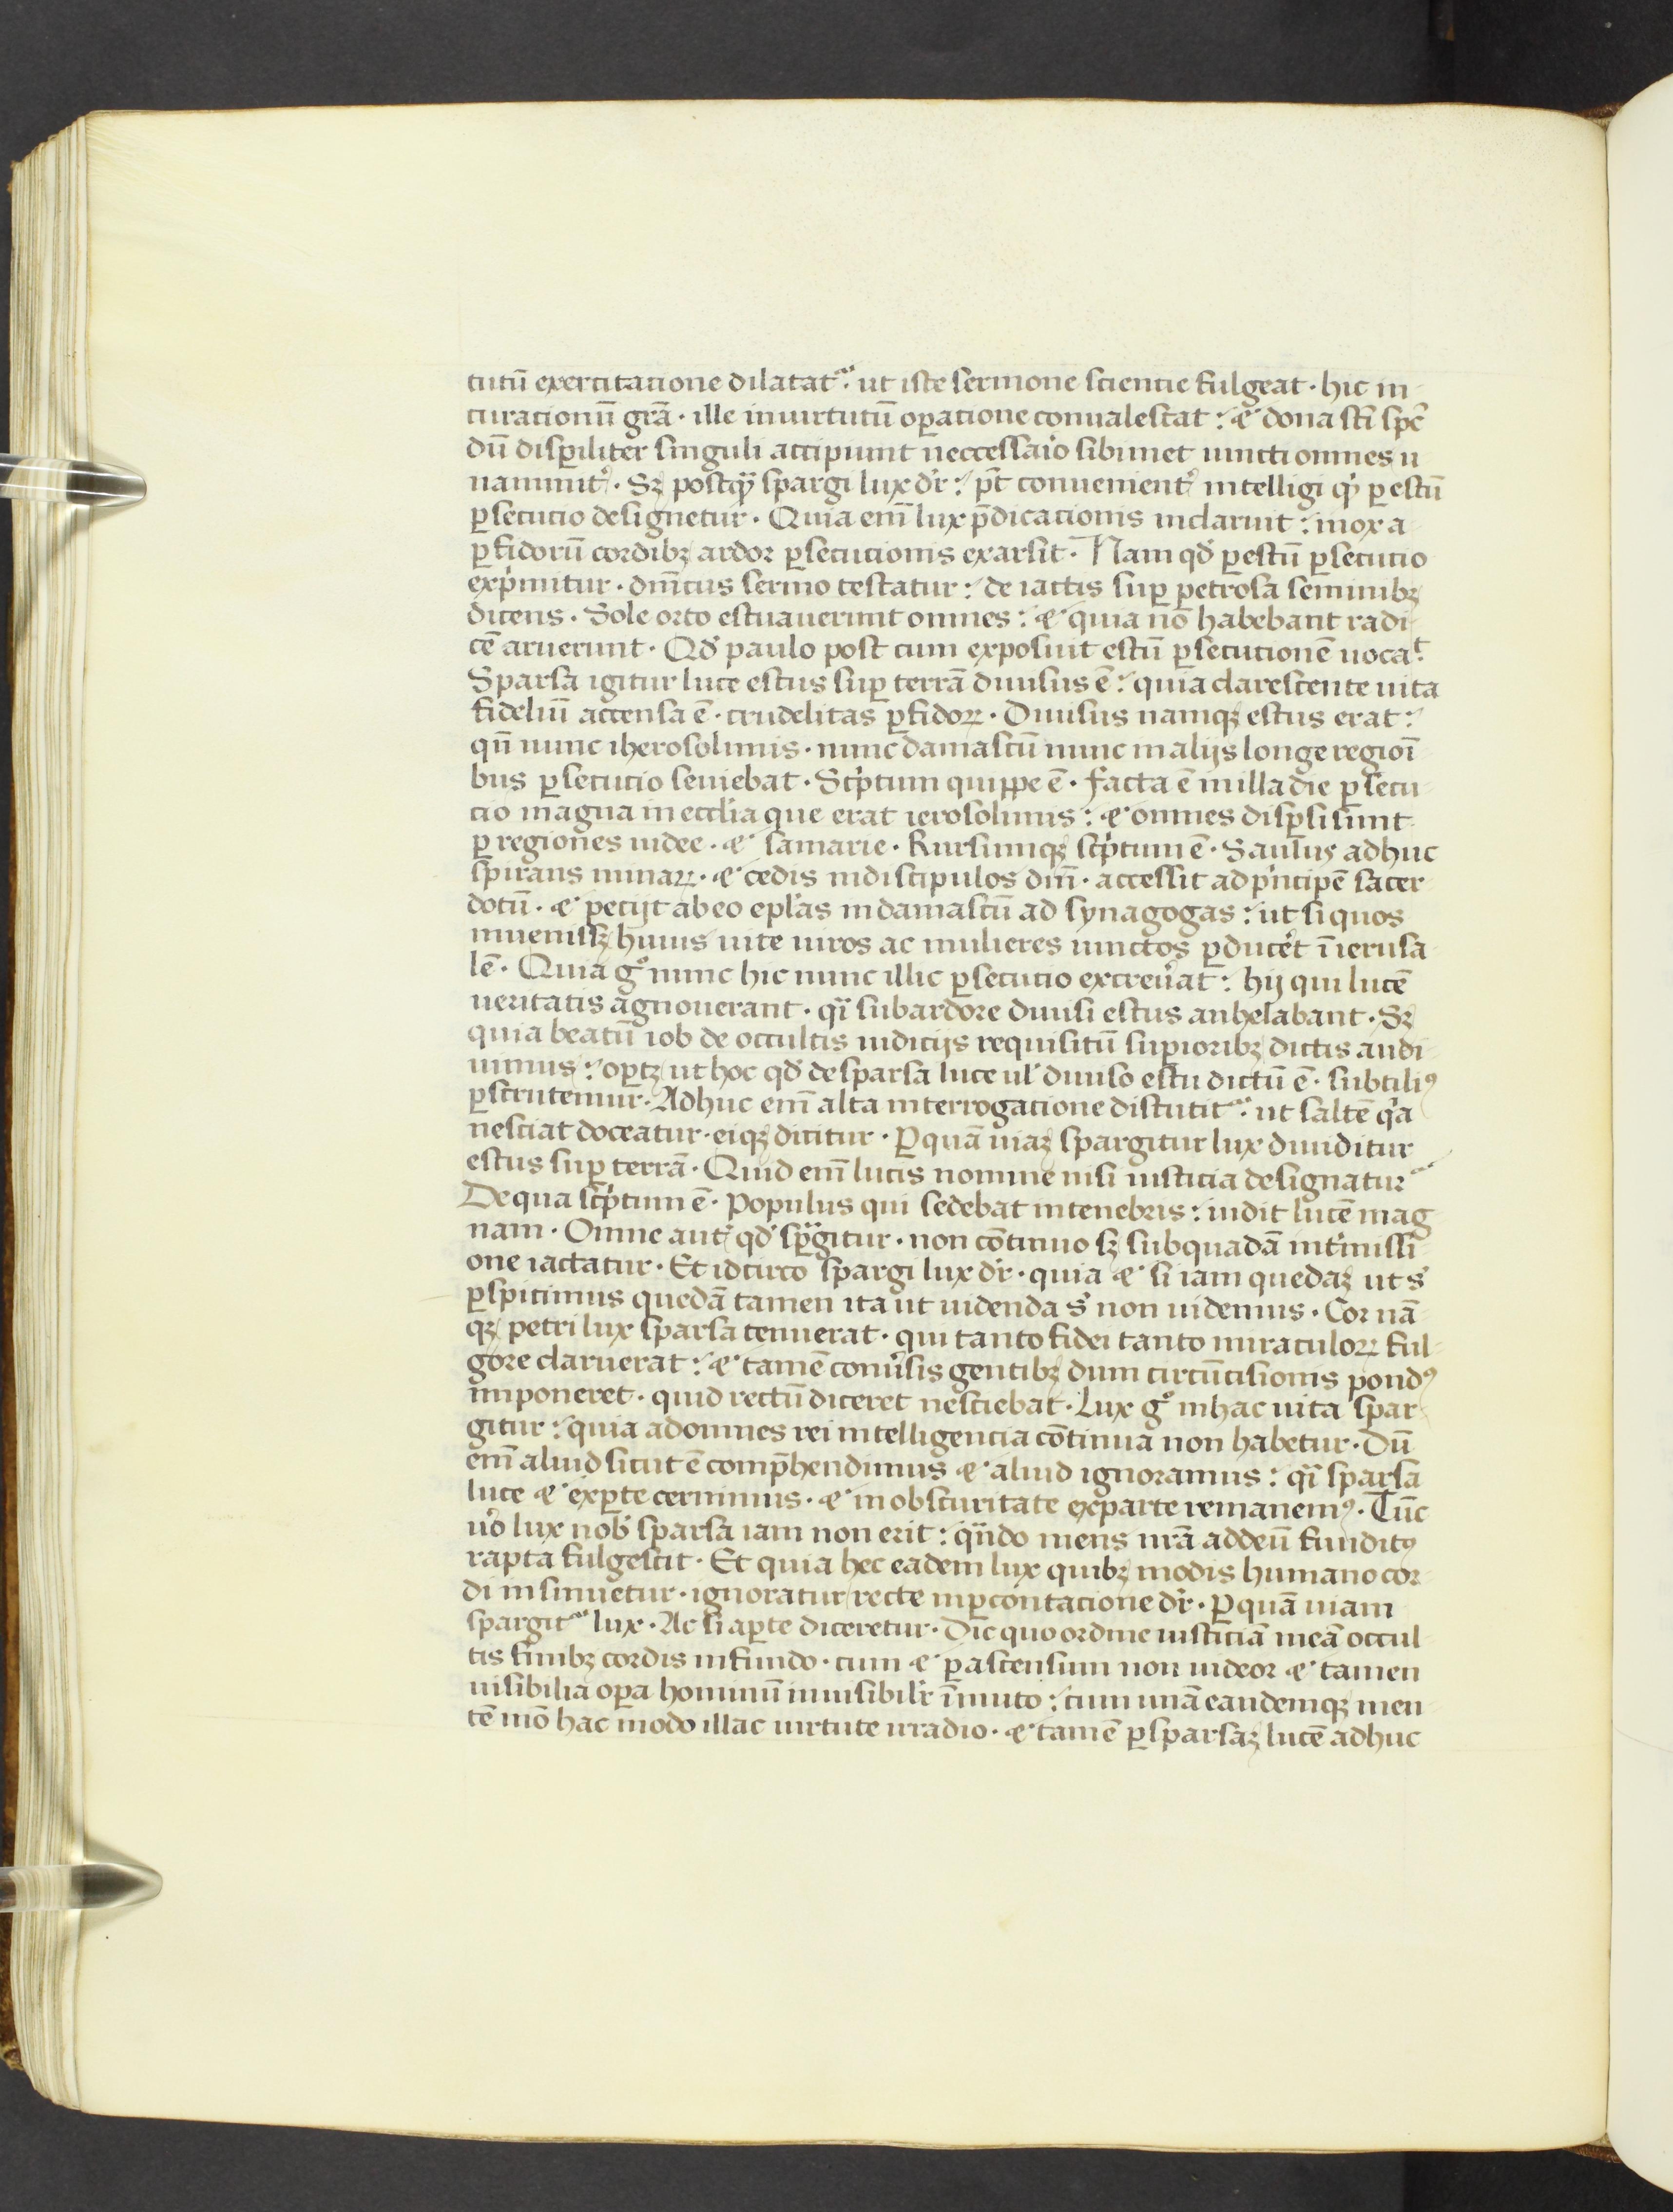 tutū exercitatione dilatatᵘʳ : ut iste sermone scientie fulgeat · hic in
curacionū grā · ille inuirtutū oꝑatione conualescat : ⁊ dona sc̄i sp̄c
dū disꝑiliter singuli accipiunt neccessaꝛio sibimet iuncti omnes u
naniunt᷑ · Sꝫ postqͣꝫ spargi lux dr̄ : pt̄ conuenient᷑ intelligi qͥ ꝑ estū
ꝑsecucio designetur · Quia eni᷒ lux p̄dicacionis inclaruit : mox a
ꝑfidorū cordibꝫ ardor ꝑsecucionis exarsit · Nam qd̓ ꝑ estū ꝑsecucio
exp̓mitur · dn̄icus sermo testatur : de iactis suꝑ petrosa seminibꝫ
dicens · Sole orto estuauerunt omnes : ⁊ quia nō habebant radi
cē aruerunt · Qd̓ paulo post cum exposuit estū ꝑsecutionē uocaᵗ
Sparsa igitur luce estus suꝑ terrā diuisus ē : quia clarescente uita
fideliū accensa ē · crudelitas ꝑfidoꝝ · Diuisus namqꝫ estus erat :
qn̄ nunc iherosolimis · nunc damascū nunc inalijs longe regioī
bus ꝑsecucio seuiebat · Scp̓tum quippe ē · facta ē inilla die ꝑsecu
cio magna in eccl̓ia que erat ierosolimis : ⁊ omnes disꝑsi sunt
ꝑ regiones iudee · ⁊ samarie · Rursumqꝫ scp̓tum ē · Saulus adhuc
spirans minaꝝ · ⁊ cedis indiscipulos dn̄i · accessit ad p̓ncipē sacer
dotū · ⁊ pecijt ab eo epl̓as in damascū ad synagogas : ut siquos
inuenissꝫ huius uite uiros ac mulieres uinctos ꝑducet᷑ ī ierusa
lē · Quia gͦ nunc hic nunc illic ꝑsecucio excreu̓at : hij qui lucē
ueritatis agnouerant · qͣi sub ardore diuisi estus anhelabant · Sꝫ
quia beatū iob de occultis iudicijs requisitū suꝑioribꝫ dictis audi
uimus : oꝑtꝫ ut hoc qd̓ de sparsa luce ul̓ diuiso estu dictū ē · subtiliꝰ
ꝑscrutemur · Adhuc eni᷒ alta interrogacione discutitᵘʳ : ut saltē qͥa
nesciat doceatur · eiqꝫ dicitur · Ꝑ quā uiaꝫ spargitur lux diuiditur
estus suꝑ terrā · Quid eni᷒ lucis nomine nisi iusticia designatur
De qua scp̓tum ē · Populus qui sedebat intenebris : uidit lucē mag
nam · Omne aut᷑ qd̓ spͣgitur · non cōtinuo sꝫ sub quadā int᷑missi
one iactatur · Et idcirco spargi lux dr̄ · quia ⁊ si iam quedaꝫ ut s̓
ꝑspicimus quedā tamen ita ut uidenda s̓ non uidemus · Cor nā
qꝫ petri lux sparsa tenuerat · qui tanto fidei tanto miraculoꝝ ful
gore claruerat : ⁊ tamē conu̓sis gentibꝫ dum circūcisionis pondꝰ
imponeret · quid rectū diceret nesciebat · Lux gͦ inhac uita spar
gitur : quia adomnes rei intelligencia cōtinua non habetur · Dū
eni᷒ aliud sicut ē comp̄hendimus ⁊ aliud ignoramus : qͣi sparsa
luce ⁊ exꝑte cernimus · ⁊ in obscuritate exparte remanemꝰ · Tūc
uͦo lux nob̓ sparsa iam non erit : qͣndo mens nr̄a addeū funditꝰ
rapta fulgescit · Et quia hec eadem lux quibꝫ modis humano cor
di insinuetur · ignoratur recte inꝑcontacione dr̄ · Ꝑ quā uiam
spargitᵘʳ lux · Ac si aꝑte diceretur · Dic quo ordine iusticiā meā occul
tis sinibꝫ cordis infundo · cum ⁊ ꝑ ascensum non uideor ⁊ tamen
uisibilia oꝑa hominū inuisibilr̓ īmuto : cum unā eandemqꝫ men
tē mō hac modo illac uirtute irradio · ⁊ tamē ꝑ sparsaꝫ lucē adhuc